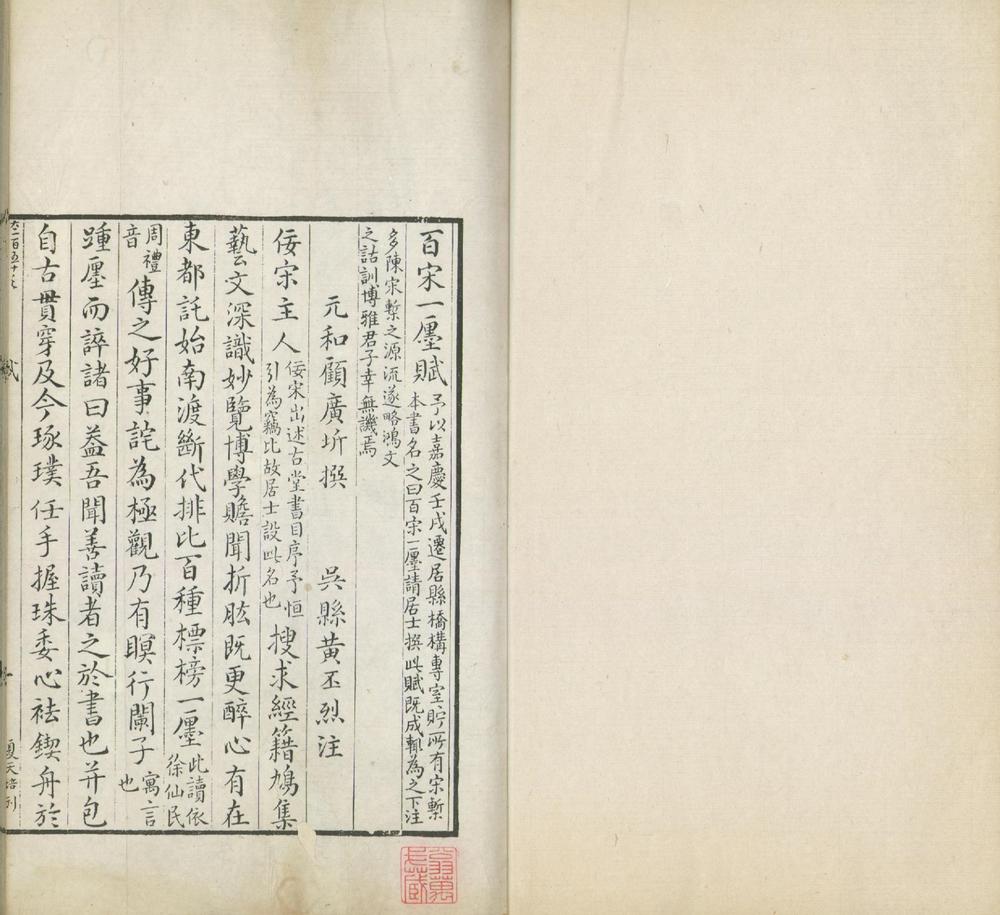 百宋一廛賦 予以嘉慶壬戌遷居縣橋構專室貯所有宋槧
本書名之曰百宋一廛請居士撰此賦既成輒為之下注
多陳宋槧之源流遂略鴻文
之詁訓博雅君子幸無譏焉
元和顧廣圻撰 吳縣黃丕烈注
佞宋主人 佞宋出述古堂書目序予恒
引為竊比故居士設此名也 搜求經籍鳩集
藝文深識妙覽博學贍聞折肱既更醉心有在
東都託始南渡斷代排比百種標榜一廛 此讀依
徐仙民
周禮
音 傳之好事詫為極觀乃有瞑行闌子 寓言
也
踵廛而誶諸曰蓋吾聞善讀者之於書也并包
自古貫穿及今琢璞任手握珠委心袪鍥舟於
夏天培刊